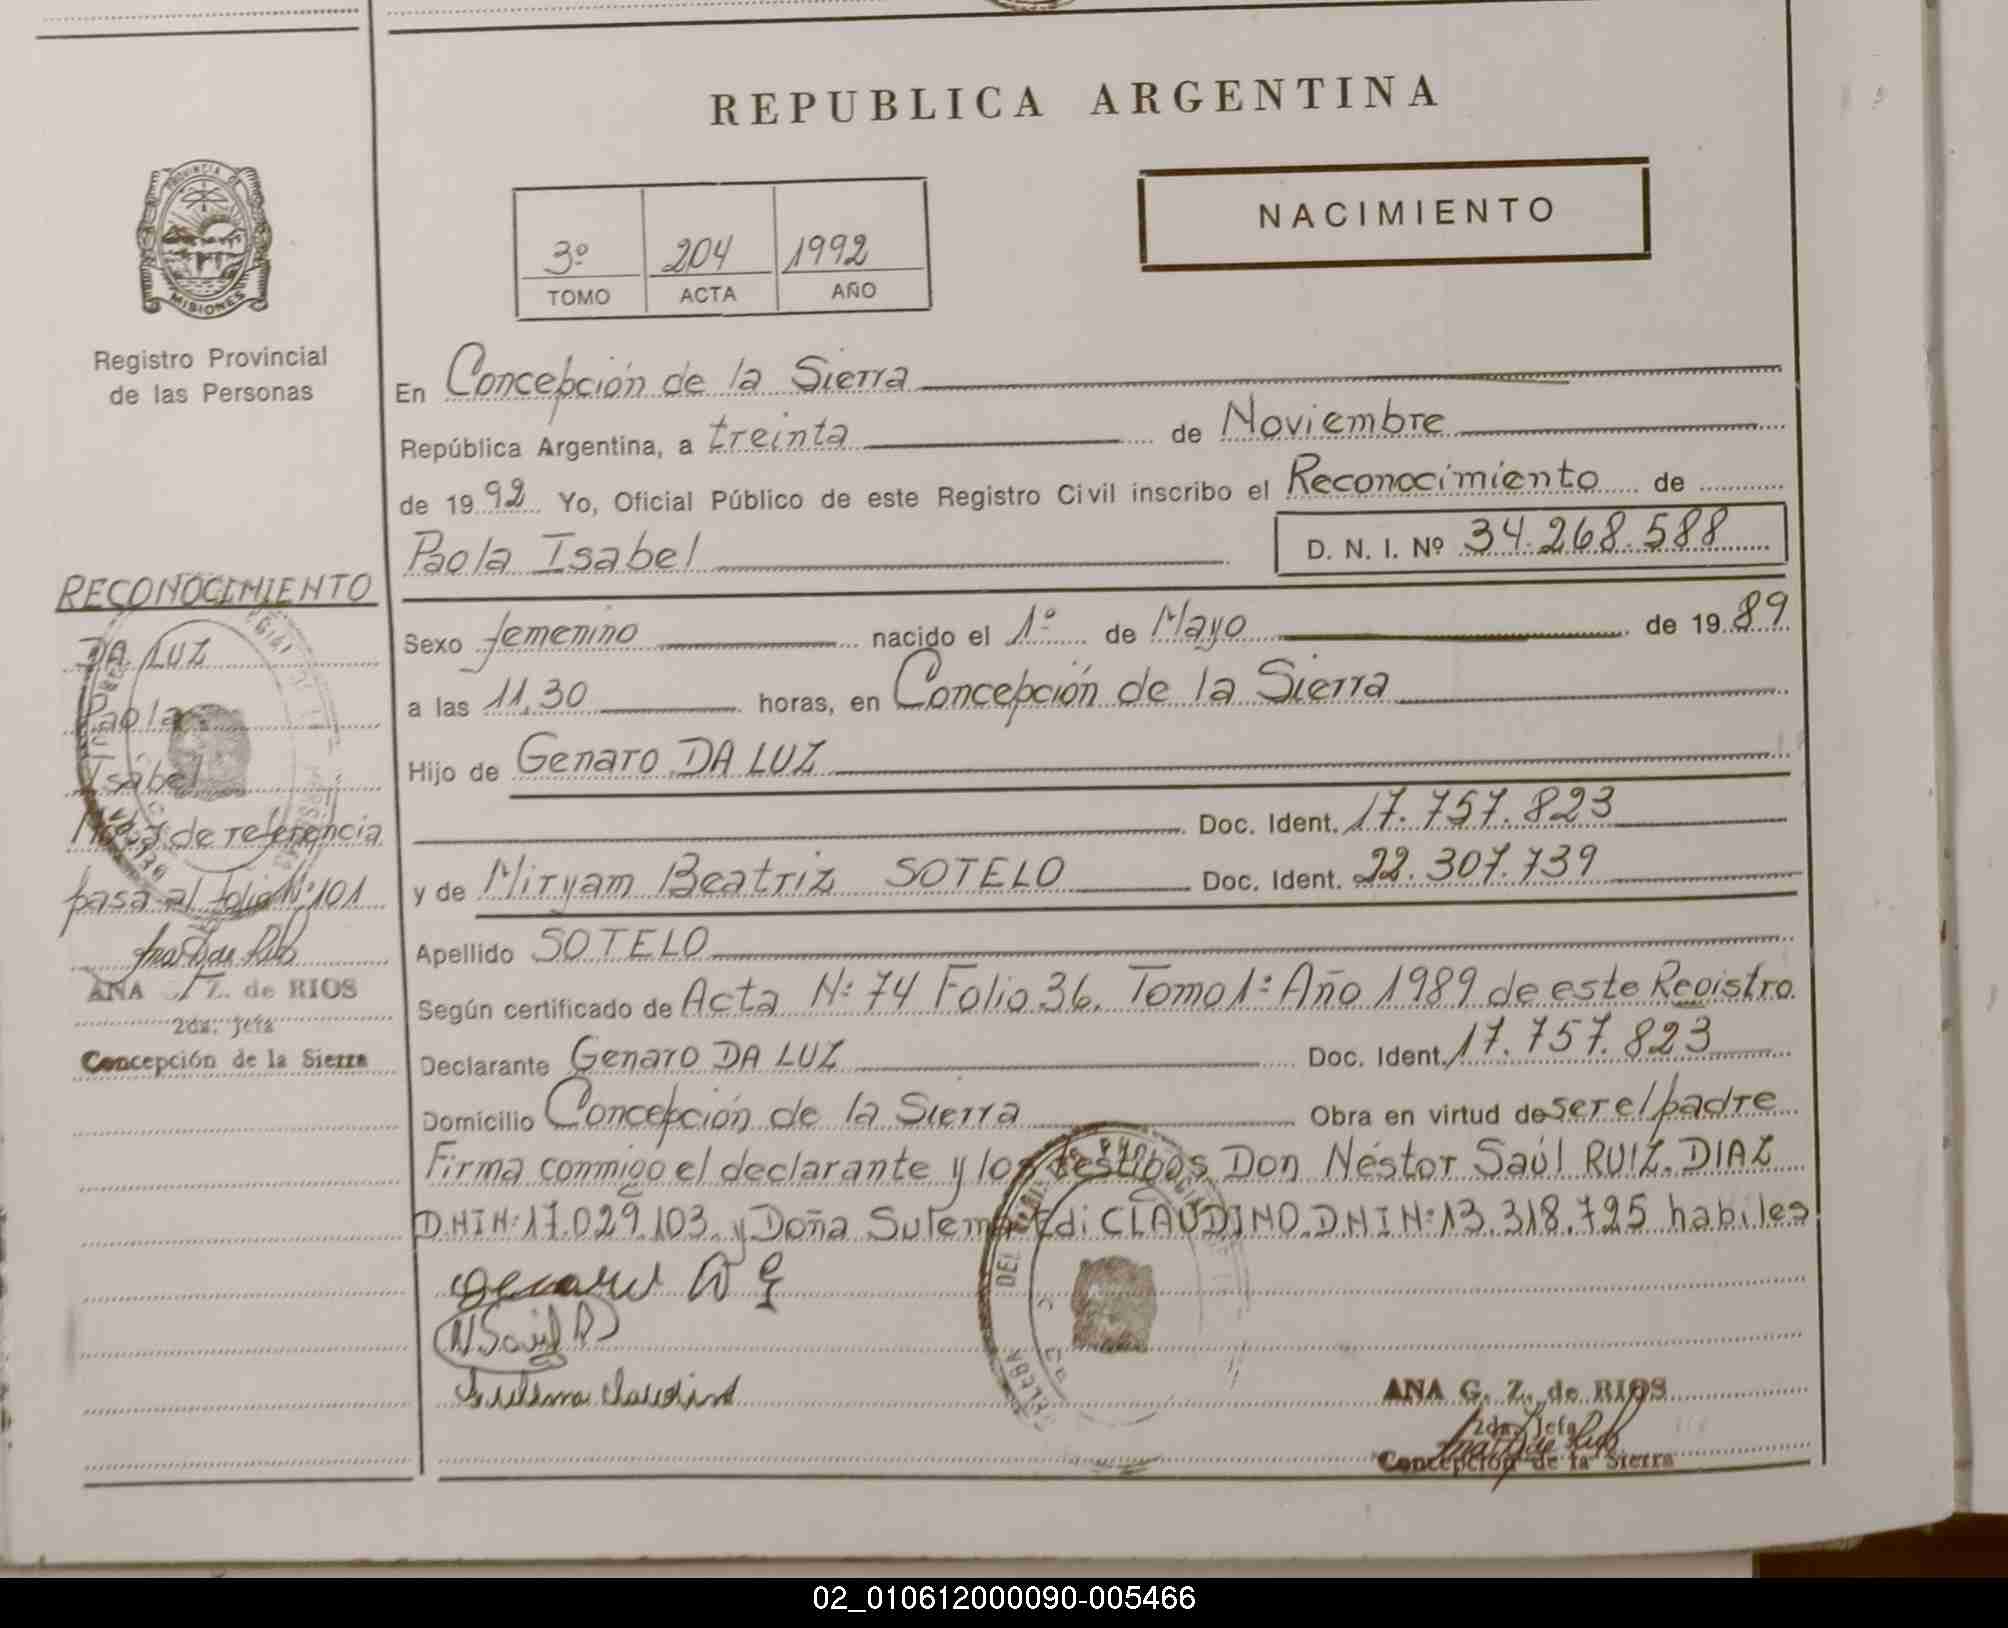 REPUBLICA ARGENTINA
PROVINCIA DE
MISIONES
Registro Provincial
de las Personas
NACIMIENTO
3º 204 1992
TOMO ACTA AÑO
En Concepción de la Sierra
República Argentina, a treinta de Noviembre
de 1992 Yo, Oficial Público de este Registro Civil inscribo el Reconocimiento de
Paola Isabel D. N. I. Nº 34.268.588
Sexo femenino nacido el 1º de Mayo de 1989
a las 11,30 horas, en Concepción de la Sierra
Hijo de Genaro DA LUZ
Doc. Ident. 17.757.823
y de Miryam Beatriz SOTELO Doc. Ident. 22.307.739
Apellido SOTELO
Según certificado de Acta Nº 74 Folio 36. Tomo 1º Año 1989 de este Registro
Declarante Genaro DA LUZ Doc. Ident. 17.757.823
Domicilio Concepción de la Sierra Obra en virtud de ser el padre
Firma conmigo el declarante y los testigos Don Néstor Saúl RUIZ DIAZ
D.N.I Nº 17.029.103. y Doña Sulema Edi CLAUDINO D.N.I Nº 13.318.725 habiles
N Saúl R
Sulema Claudino
ANA G. Z. de RIOS
2da. Jefa
Concepción de la Sierra
RECONOCIMIENTO
DA LUZ
Paola
Isabel
Nota de referencia
pasa al folio Nº 101
ANA Z. de RIOS
2da. Jefa
Concepción de la Sierra
02_010612000090-005466